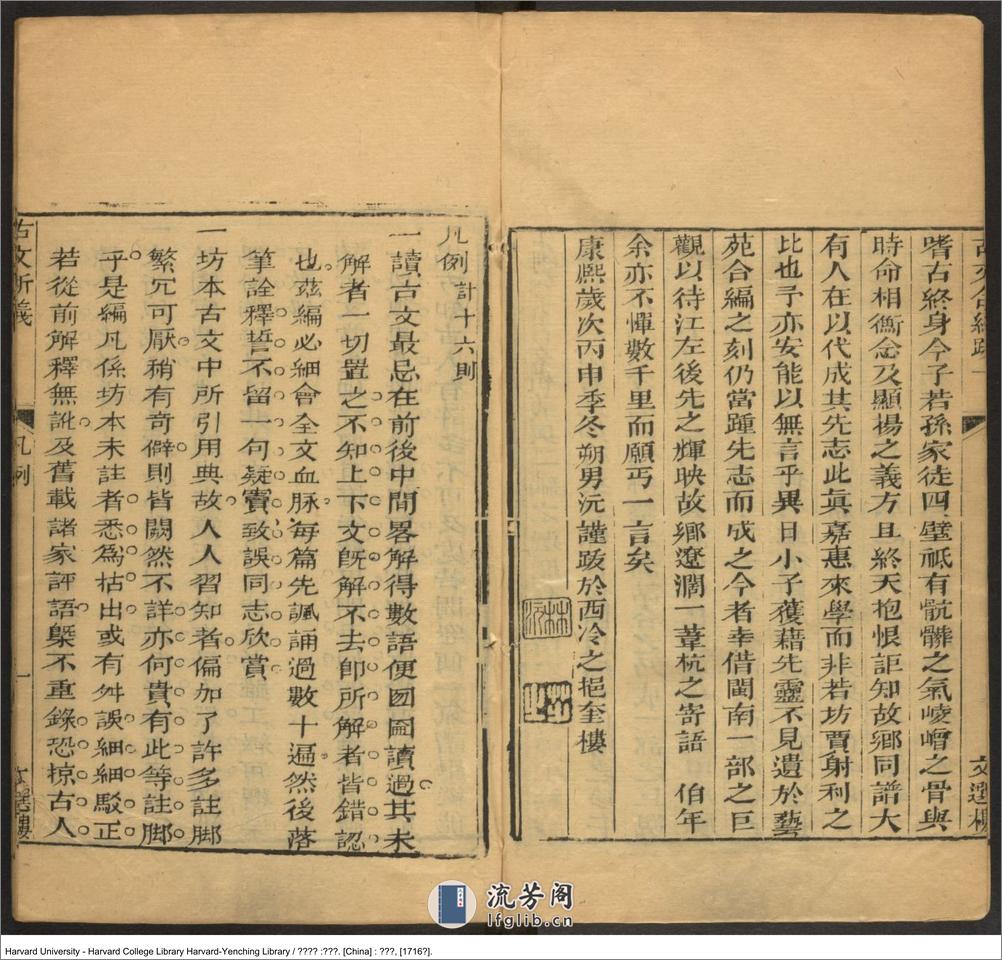 古文合編跋
嗜古終身今子若孫家徒四壁祇有骯髒之氣崚嶒之骨與
時命相衡念及顯揚之義方且終天抱恨詎知故鄉同譜大
有人在以代成其先志此眞嘉惠來學而非若坊賈射利之
比也予亦安能以無言乎異日小子獲藉先靈不見遺於藝
苑合編之刻仍當踵先志而成之今者幸借閩南一部之巨
觀以待江左後先之輝映故鄉遼濶一葦杭之寄語 伯年
余亦不憚數千里而願丐一言矣
康熙歲次丙申季冬朔男沅謹跋於西泠之挹奎樓
林沅
文選樓
凡例計十六則
一讀古文最忌在前後中間畧解得數語便囫圇讀過其未
解者一切置之不知上下文旣解不去卽所解者皆錯認
也茲編必細會全文血脉每篇先諷誦過數十遍然後落
筆詮釋誓不留一句疑竇致誤同志欣賞
一坊本古文中所引用典故人人習知者偏加了許多註脚
繁冗可厭稍有奇僻則皆闕然不詳亦何貴有此等註脚
乎是編凡係坊本未註者悉爲拈出或有舛誤細細駁正
若從前解釋無訛及舊載諸家評語槩不重錄恐掠古人
古文析義
凡例
一
文選樓
流芳阁
lfglib.cn
Harvard University - Harvard College Library Harvard-Yenching Library / ???? :???. [China] : ???, [1716?].